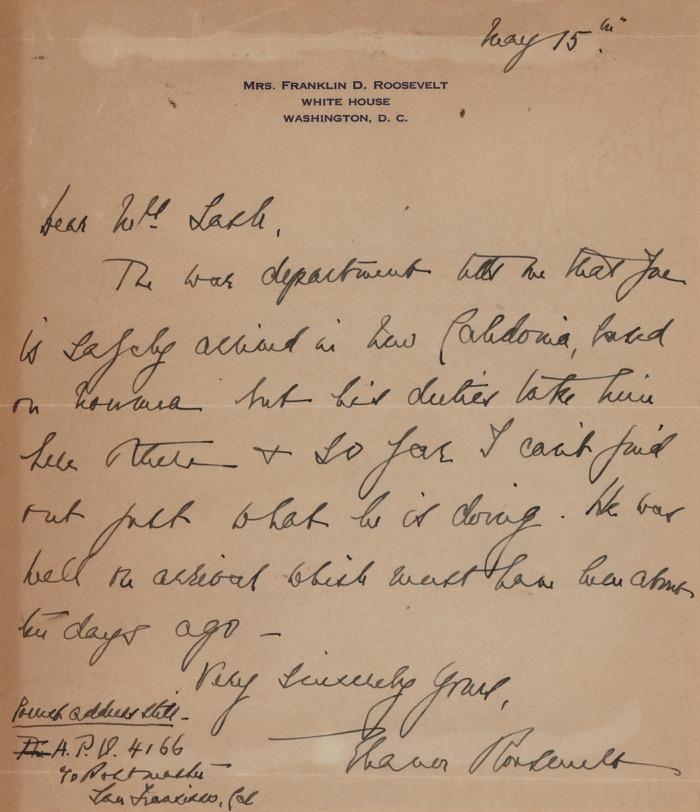 May 15th
MRS. FRANKLIN D. ROOSEVELT
WHITE HOUSE
WASHINGTON, D. C.
Dear Mrs Lash,
The war department tells me that Joe
is safely arrived in New Caledonia, based
on Noumea but his duties take him
here & there & so far I can't find
out just what he is doing. He was
well on arrival which must have been about
ten days ago –
Very sincerely yours,
Eleanor Roosevelt
address still –
A.P.O. 4166
c/o Postmaster
San Francisco, Cal